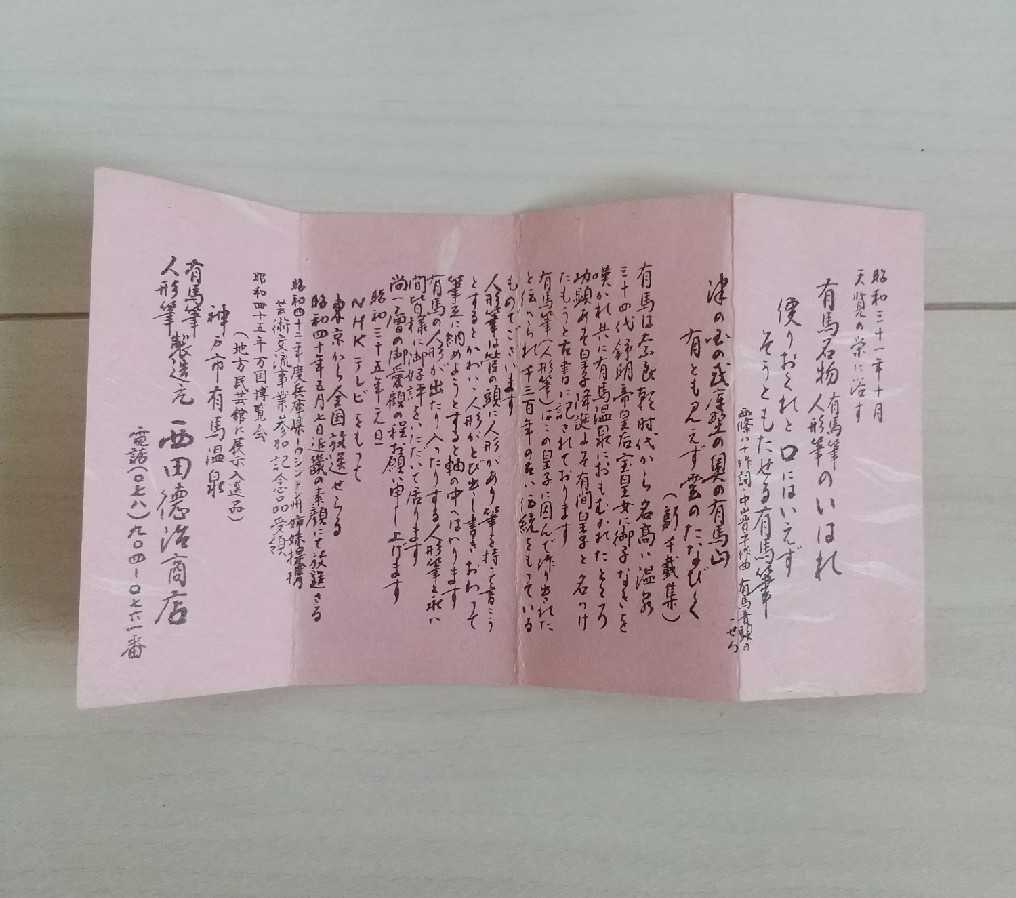 昭和三十一年十月
天覧の栄に浴す
有馬名物 有馬筆 人形筆のいはれ
便りおくれと口にはいえず
そっともたせる有馬筆
西條八十作詞・中山晋平作曲 有馬音頭の一せつ
津の国の武庫の奥の有馬山
有とも見えず雲のたなびく
(新千載集)
有馬は奈良朝時代から名高い温泉
三十四代舒明帝皇后宝皇女に御子なきを
嘆かれ共に有馬温泉におもむかれたところ
功顕あって皇子降誕よって有間皇子と名づけ
たもうと古書に記されております
有馬筆(人形筆)はこの皇子に因んで作り出された
と伝えられ千三百年の古い伝統をもっている
ものでございます
人形筆は管の頭に人形があり筆を持って書こう
とするとかわいい人形がとび出し書きおわって
筆立に納めようとすると軸の中へはいります
有馬の人形が出たり入ったりする人形筆と永い
間皆様に御好評をいただいて居ります
尚一層の御愛顧の程お願い申し上げます
昭和三十五年元旦
NHKテレビをもって
東京から全国放送せらる
昭和四十年五月七日近畿の素顔にて放送さる
昭和四十二年度兵庫県・ワシントン州姉妹提携
芸術交流事業参加記念品受領
昭和四十五年万国博覧会
(地方民芸館に展示入選品)
神戸市有馬温泉
有馬筆 人形筆 製造元 西田徳治商店
電話(〇七八)九〇四-〇七六一番